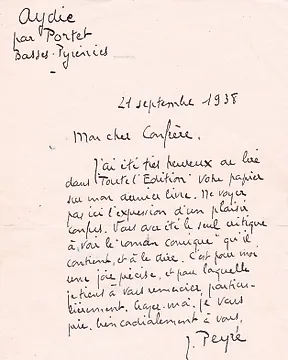 Aydie
par Portet
Basses-Pyrénées
21 septembre 1938
Mon cher Confrère,
J'ai été très heureux de lire
dans "Toute l'Edition" votre papier
sur mon dernier livre. Ne voyez
pas ici l'expression d'un plaisir
confus. Vous avez été le seul critique
à voir le "roman comique" qu'il
contient, et à le dire. C'est pour moi
une joie précise, et pour laquelle
je tiens à vous remercier, particu-
lièrement. Croyez-moi, je vous
prie, bien cordialement à vous,
J. Peyré